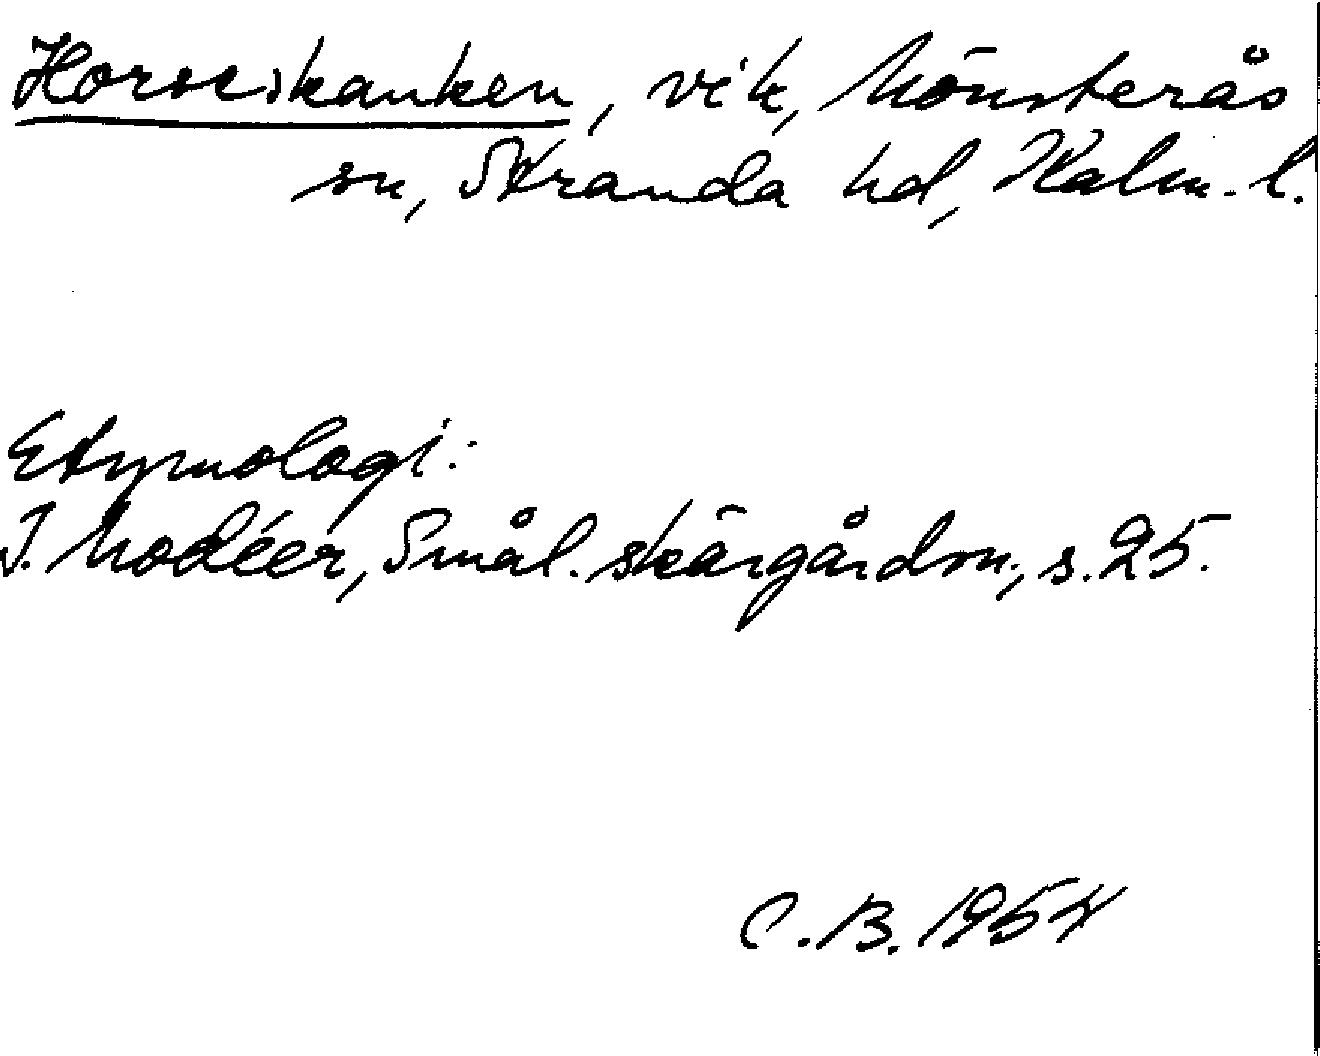 Horseskanken, vik, Mönsterås
sn, Stranda hd, Kalm. l.
Etymologi:
I. Modéer, Smål. skärgårdsn., s. 25.
C. B. 1954